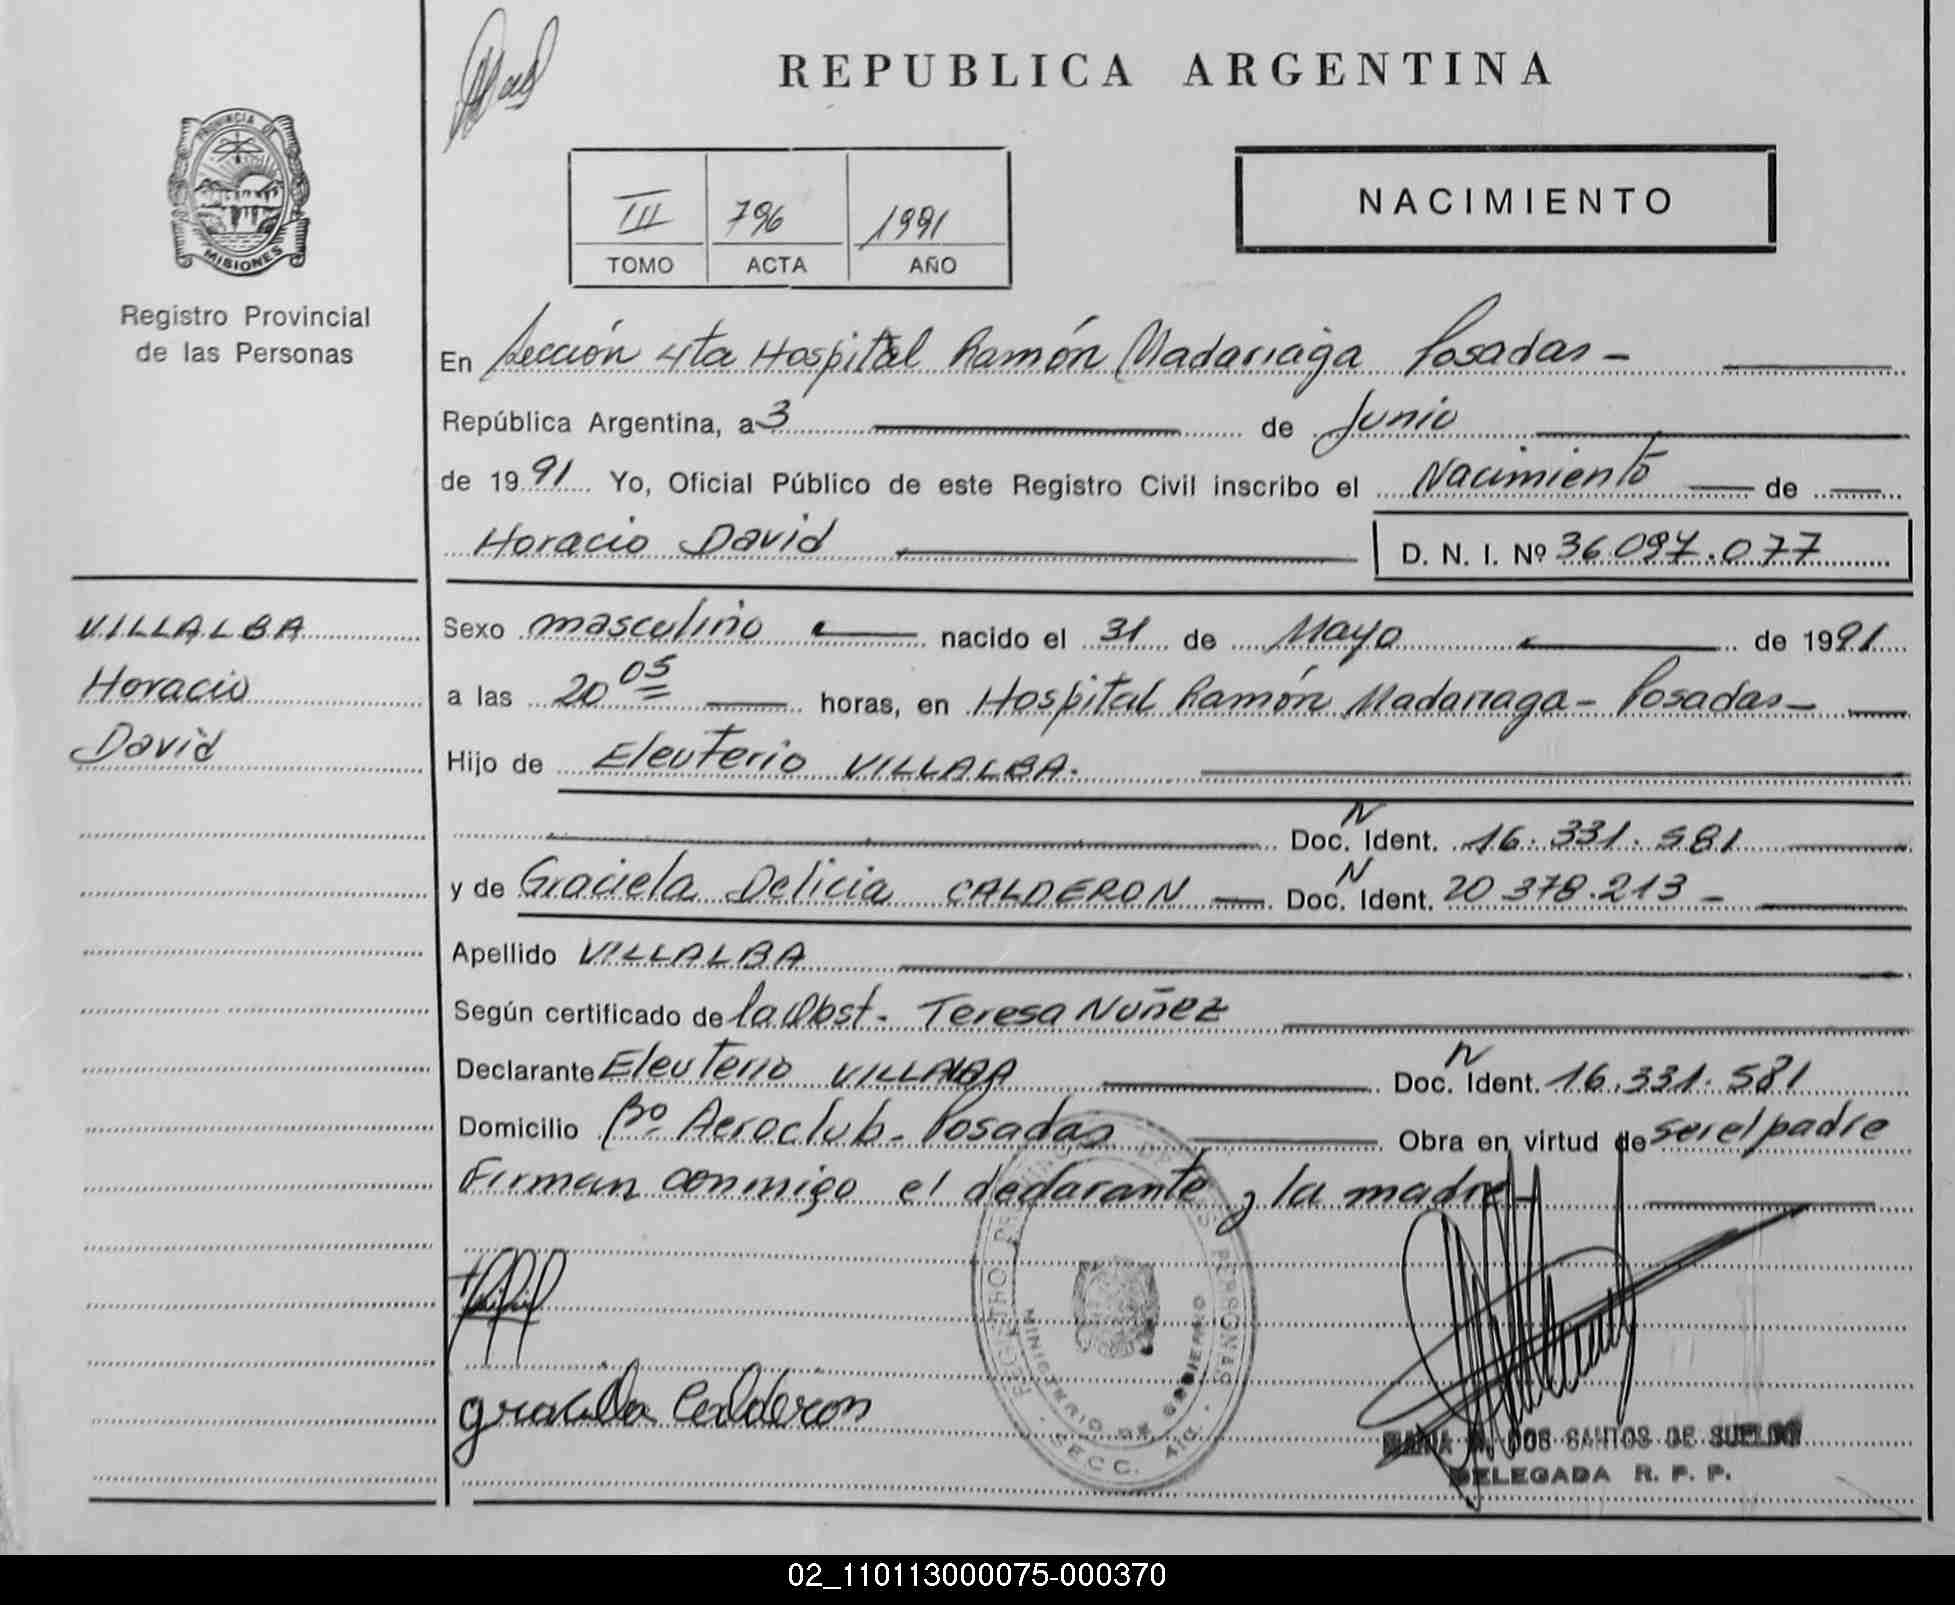 REPUBLICA ARGENTINA
PROVINCIA DE
MISIONES
Registro Provincial
de las Personas
III 796 1991
TOMO ACTA AÑO
NACIMIENTO
En Sección 4ta Hospital Ramón Madariaga Posadas -
República Argentina, a 3 de Junio
de 1991 Yo, Oficial Público de este Registro Civil inscribo el Nacimiento de
Horacio David D. N. I. Nº 36.097.077
VILLALBA
Horacio
David
Sexo masculino nacido el 31 de Mayo de 1991
a las 20 05 horas, en Hospital Ramón Madariaga - Posadas -
Hijo de Eleuterio VILLALBA.
Doc. N Ident. 16.331.581
y de Graciela Delicia CALDERON Doc. N Ident. 20 378.213 -
Apellido VILLALBA
Según certificado de la Obst. Teresa Nuñez
Declarante Eleuterio VILLALBA Doc. N Ident. 16.331.581
Domicilio Bº Aeroclub - Posadas Obra en virtud de ser el padre
Firman conmigo el declarante y la madre -
REGISTRO PROVINCIAL DE LAS PERSONAS
MINISTERIO DE GOBIERNO
SECC. 4ta.
graciela Calderon
DOS SANTOS DE SUELDO
DELEGADA R. P. P.
02_110113000075-000370